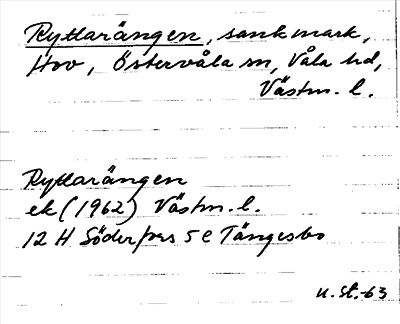 Ryttarängen, sankmark,
Hov, Östervåla sn, Våla hd,
Västm. l.
Ryttarängen
ek (1962) Västm. l.
12 H Söderfors 5 e Tängesbo
U. St.-63